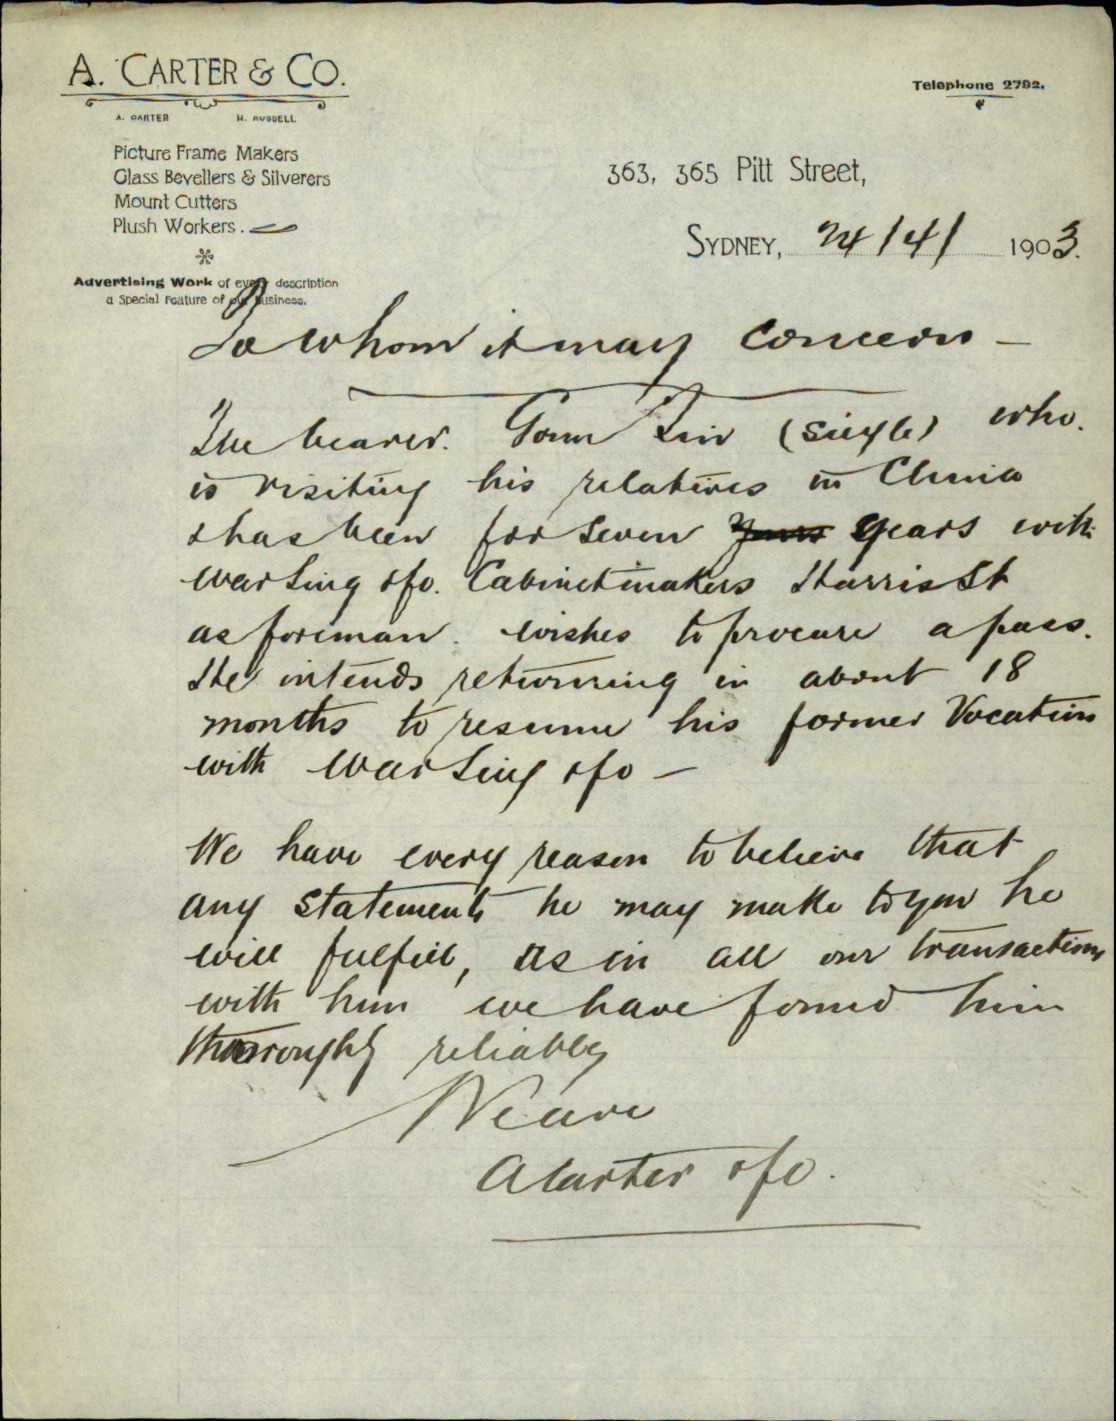 A. CARTER & CO.
A. CARTER H. RUSSELL
Telephone 2792.
Picture Frame Makers
Glass Bevellers & Silverers
Mount Cutters
Plush Workers.
363, 365 Pitt Street,
SYDNEY, 24/4/ 1903.
Advertising Work of every description
a Special Feature of our business.
To whom it may concern —
The bearer. (single) who.
is visiting his relatives in China
& has been for seven years with
War Sing & Co. Cabinetmakers Harris St
as foreman. wishes to procure a pass.
He intends returning in about 18
months to resume his former Vocation
with War Sing & Co —
We have every reason to believe that
any statements he may make to you he
will fulfill, as in all our transactions
with him we have found him
thorroughly reliable
We are
A Carter & Co.